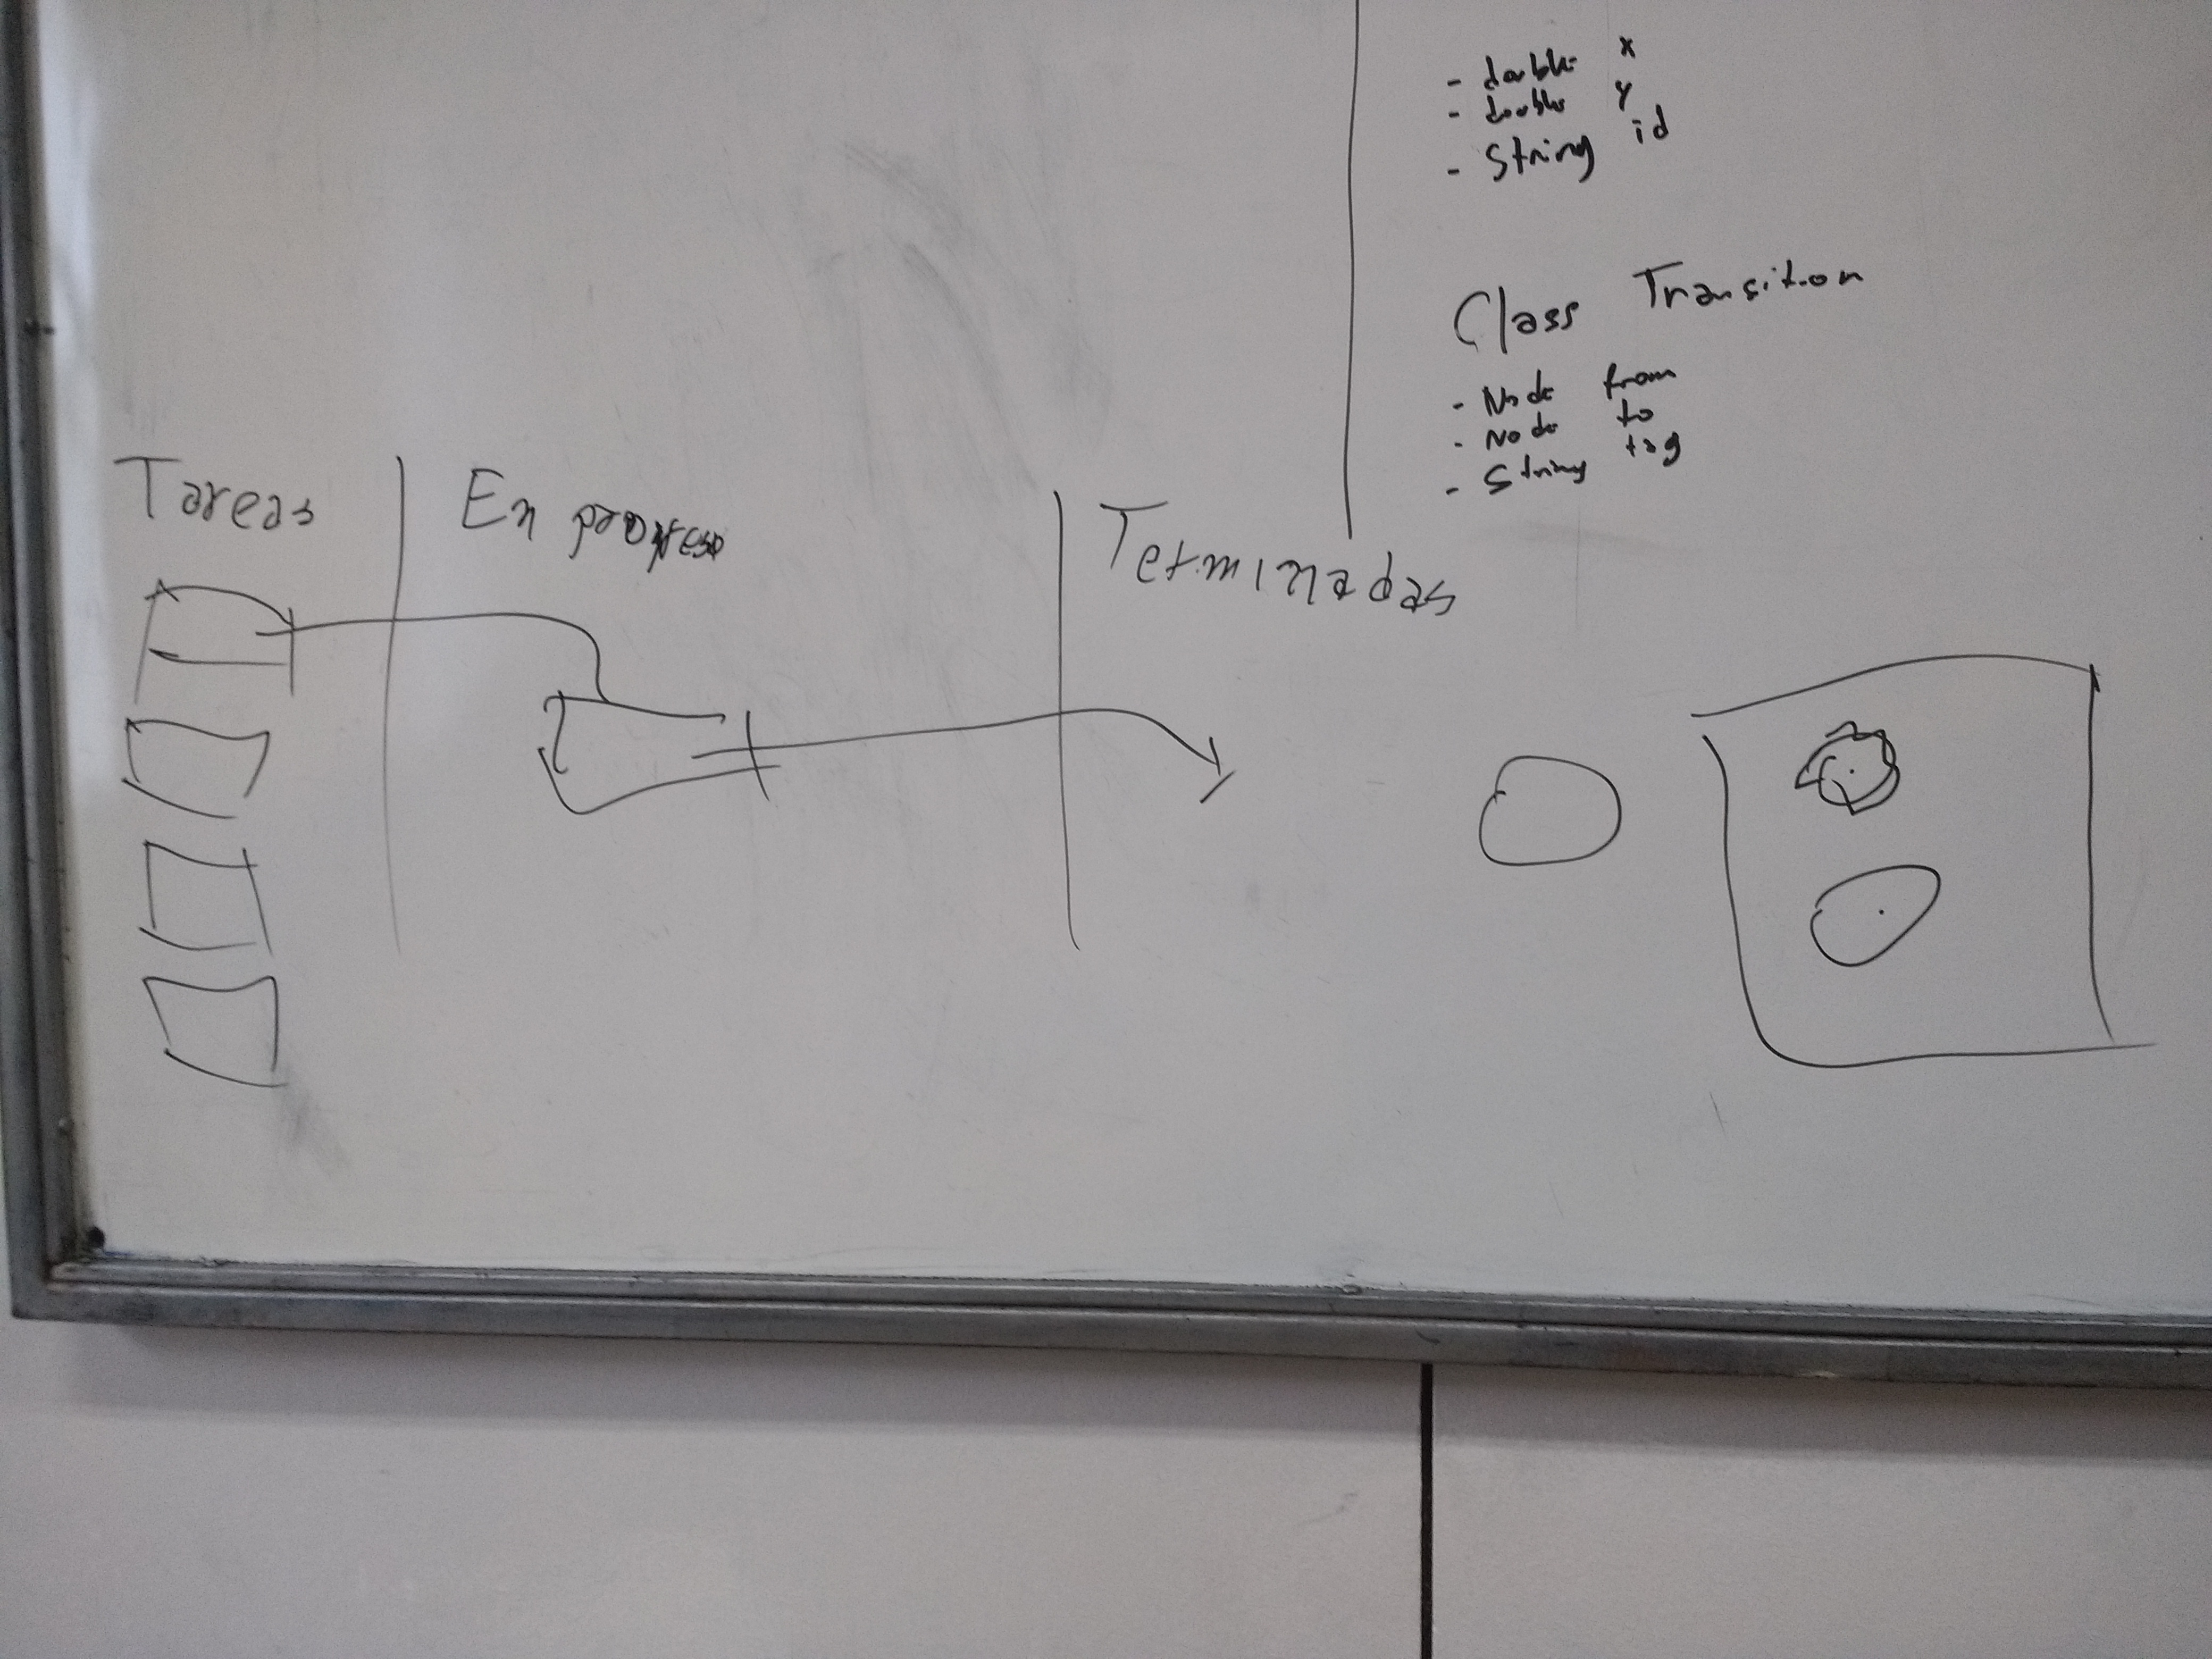 - double x
- double y
- String id
Class Transition
- Node from
- Node to
- String tag
Tareas
En progreso
Terminadas